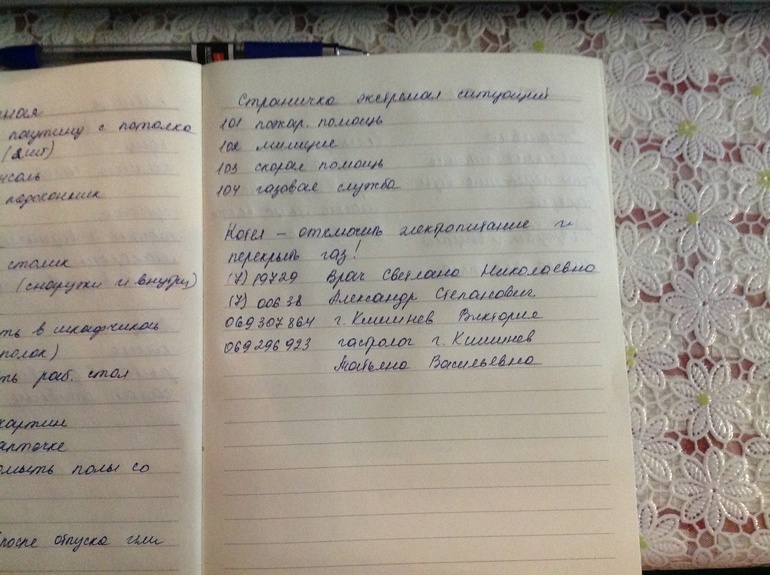 ная
паутину с потолка
(2шт)
соль
подоконник
столик
(снаружи и внутри)
ть в шкафчиках
полок)
ть раб. стол
картин
аптечке
омыть полы со
после отпуска или
Страничка экстремал ситуаций
101 пожар. помощь
102 милиция
103 скорая помощь
104 газовая служба
Котел – отключить электропитание и
перекрыть газ!
(7) 19729 Врач Светлана Николаевна
(7) 00638 Александр Степанович
069307864 г. Кишинев Виктория
069296923 гастролог г. Кишинев
Татьяна Васильевна